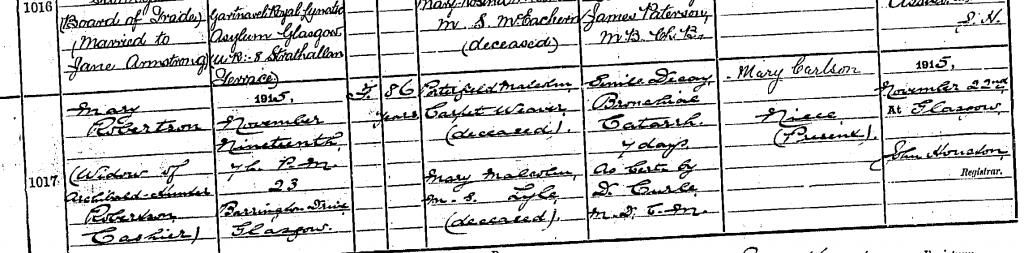 1016
(Board of Trade)
(Married to
Jane Armstrong)
Gartnavel Royal Lunatic
Asylum Glasgow
(U.R:- 8 Strathallan
Terrace)
m. S. McEachern
(deceased)
James Paterson,
M.B. Ch.B.
1017
Mary
Robertson
(Widow of
Archibald Hunter
Robertson
Cashier)
1915,
November
Nineteenth,
7h. P.M.
23
Barrington Drive
Glasgow.
F.
86
years
Porterfield Malcolm
Carpet Weaver
(deceased).
Mary Malcolm,
m. s. Lyle
(deceased).
Senile Decay
Bronchial
Catarrh.
7 days.
As cert by
D. Curle
M.D. C.M.
Mary Carlson
Niece
(Present).
1915,
November 22nd
At Glasgow.
John Houston,
Registrar.